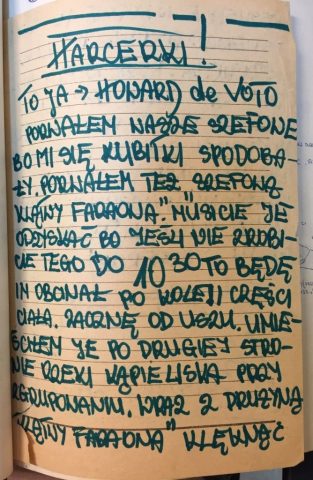 HARCERKI!
TO JA → HOWARD de VOTO
PORWAŁEM WASZE SZEFOWE
BO MI SIĘ KUBITKI SPODOBA-
ŁY. PORWAŁEM TEŻ SZEFOWĄ
"KRAINY FARAONA". MUSICIE JE
ODZYSKAĆ BO JEŚLI NIE ZROBI-
CIE TEGO DO 10 30 TO BĘDĘ
IM OBCINAŁ PO KOLEJI CZĘŚCI
CIAŁA. ZACZNĘ OD USZU. UMIE-
ŚCIŁEM JE PO DRUGIEJ STRO-
NIE RZEKI KĄPIELISKA PRZY
ZGRUPOWANIU. WRAZ Z DRUŻYNĄ
"KRAINY FARAONA" KLĘKNĄĆ